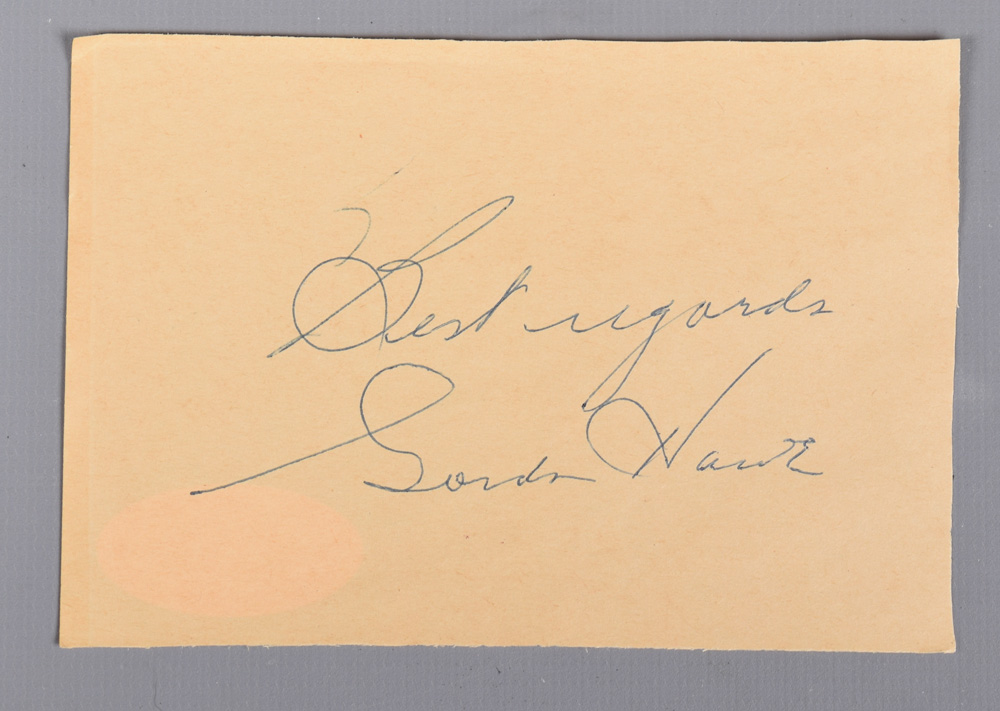 Best regards
Gordon